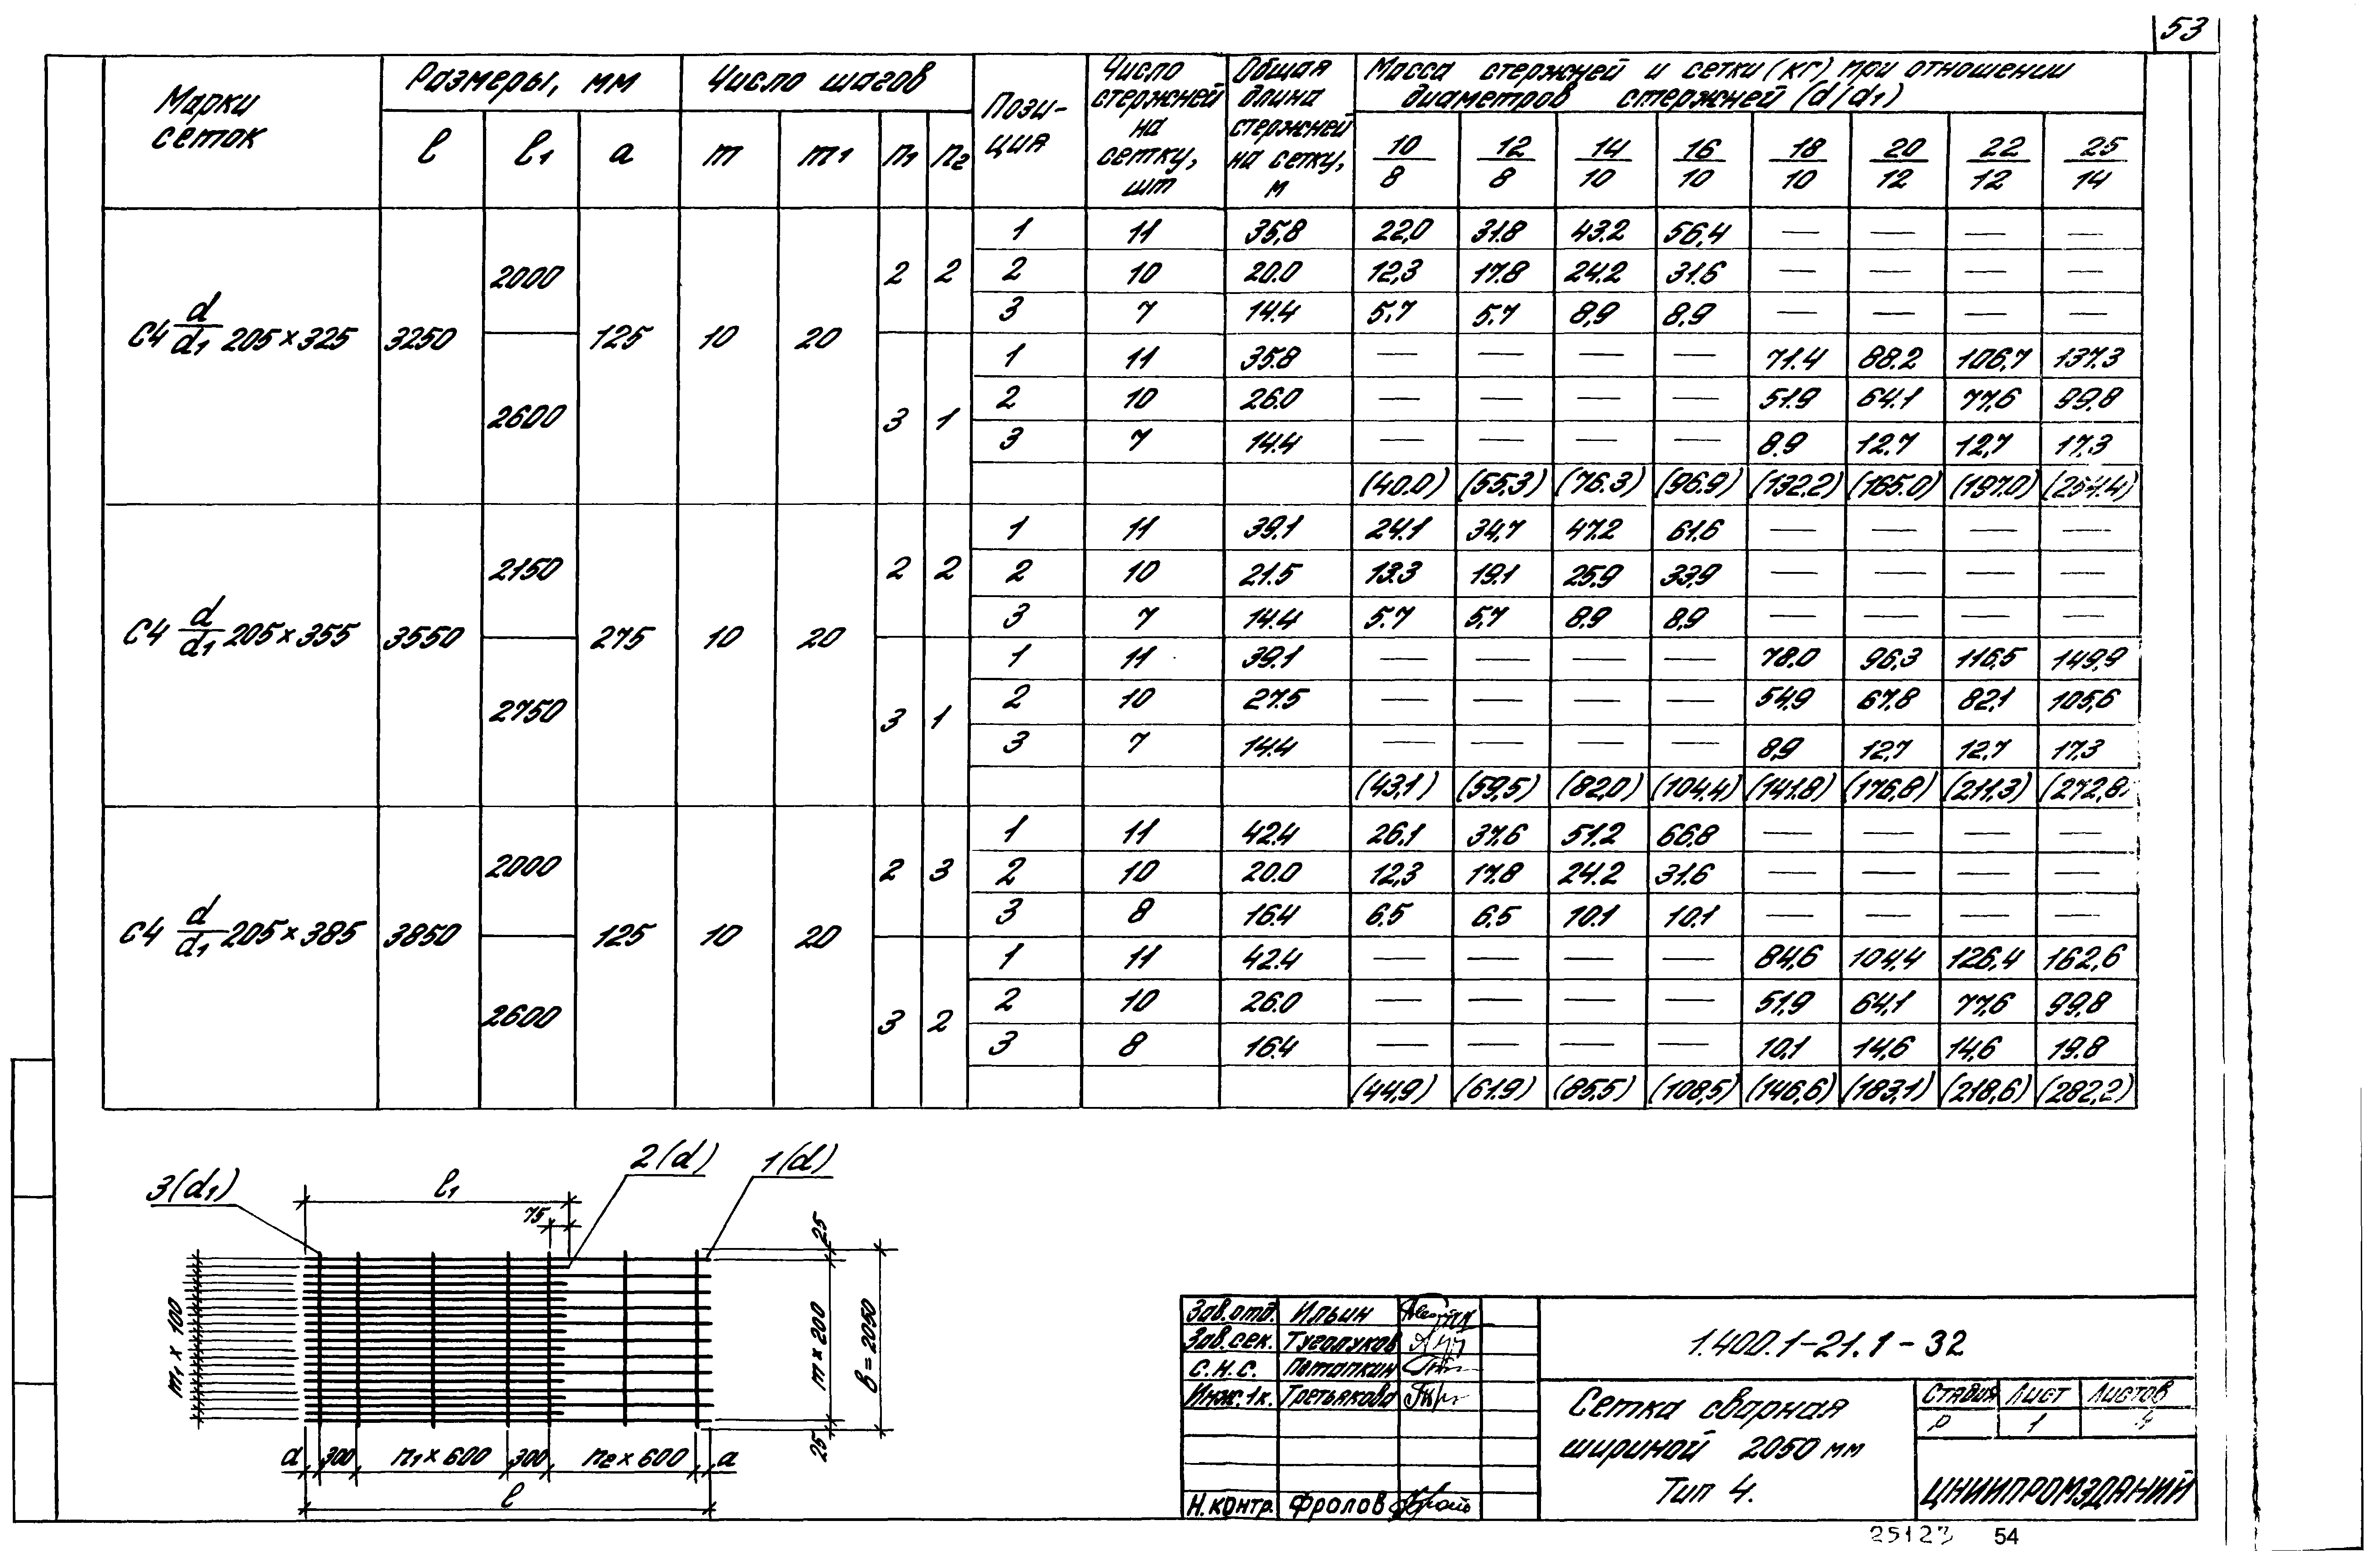 53
Марки сеток
Размеры, мм
Число шагов
Пози-ция
Число стержней на сетку, шт
Общая длина стержней на сетку, м
Масса стержней и сетки (кг) при отношении диаметров стержней (d/d1)
l l1 a m m1 n1 n2
10/8 12/8 14/10 16/10 18/10 20/12 22/12 25/14
С4 d/d1 205×325 3250 125 10 20
2000 2 2
1 11 35,8 22,0 31.8 43.2 56,4 — — — —
2 10 20.0 12,3 17.8 24.2 31.6 — — — —
3 7 14.4 5.7 5.7 8,9 8,9 — — — —
2600 3 1
1 11 35.8 — — — — 71.4 88.2 106,7 137.3
2 10 26.0 — — — — 51.9 64.1 77,6 99,8
3 7 14.4 — — — — 8.9 12.7 12,7 17.3
(40.0) (55,3) (76.3) (96.9) (132.2) (165.0) (197.0) (254.4)
С4 d/d1 205×355 3550 275 10 20
2150 2 2
1 11 39.1 24.1 34,7 47.2 61.6 — — — —
2 10 21.5 13.3 19.1 25.9 33,9 — — — —
3 7 14.4 5.7 5,7 8.9 8,9 — — — —
2750 3 1
1 11 39.1 — — — — 78.0 96,3 116,5 149,9
2 10 27.5 — — — — 54,9 67,8 82,1 105,6
3 7 14.4 — — — — 8,9 12,7 12,7 17,3
(43,1) (59,5) (82,0) (104,4) (141.8) (176,8) (211,3) (272,8)
С4 d/d1 205×385 3850 125 10 20
2000 2 3
1 11 42.4 26,1 37.6 51.2 66,8 — — — —
2 10 20.0 12,3 17.8 24.2 31.6 — — — —
3 8 16.4 6.5 6,5 10.1 10.1 — — — —
2600 3 2
1 11 42.4 — — — — 84,6 104,4 126,4 162,6
2 10 26.0 — — — — 51,9 64,1 77,6 99,8
3 8 16.4 — — — — 10,1 14,6 14,6 19.8
(44,9) (61.9) (85,5) (108,5) (146,6) (183,1) (218,6) (282,2)
3(d1)
l1
2(d)
1(d)
75
25
m1 × 100
m × 200
в = 2050
25
a 300 n1×600 300 n2×600 a
l
Зав.отд. Ильин
Зав.сек. Туголуков
С.Н.С. Потапкин
Инж.1к. Третьякова
Н.контр. Фролов
1.400.1-21.1-32
Сетка сварная
шириной 2050 мм
Тип 4.
Стадия Лист Листов
Р 1
ЦНИИПРОМЗДАНИЙ
25123 54